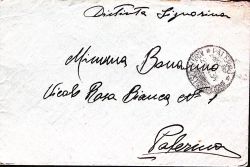 Distinta Signorina
Minerva Bonanno
Vicolo Rosa Bianca N° 1
Palermo